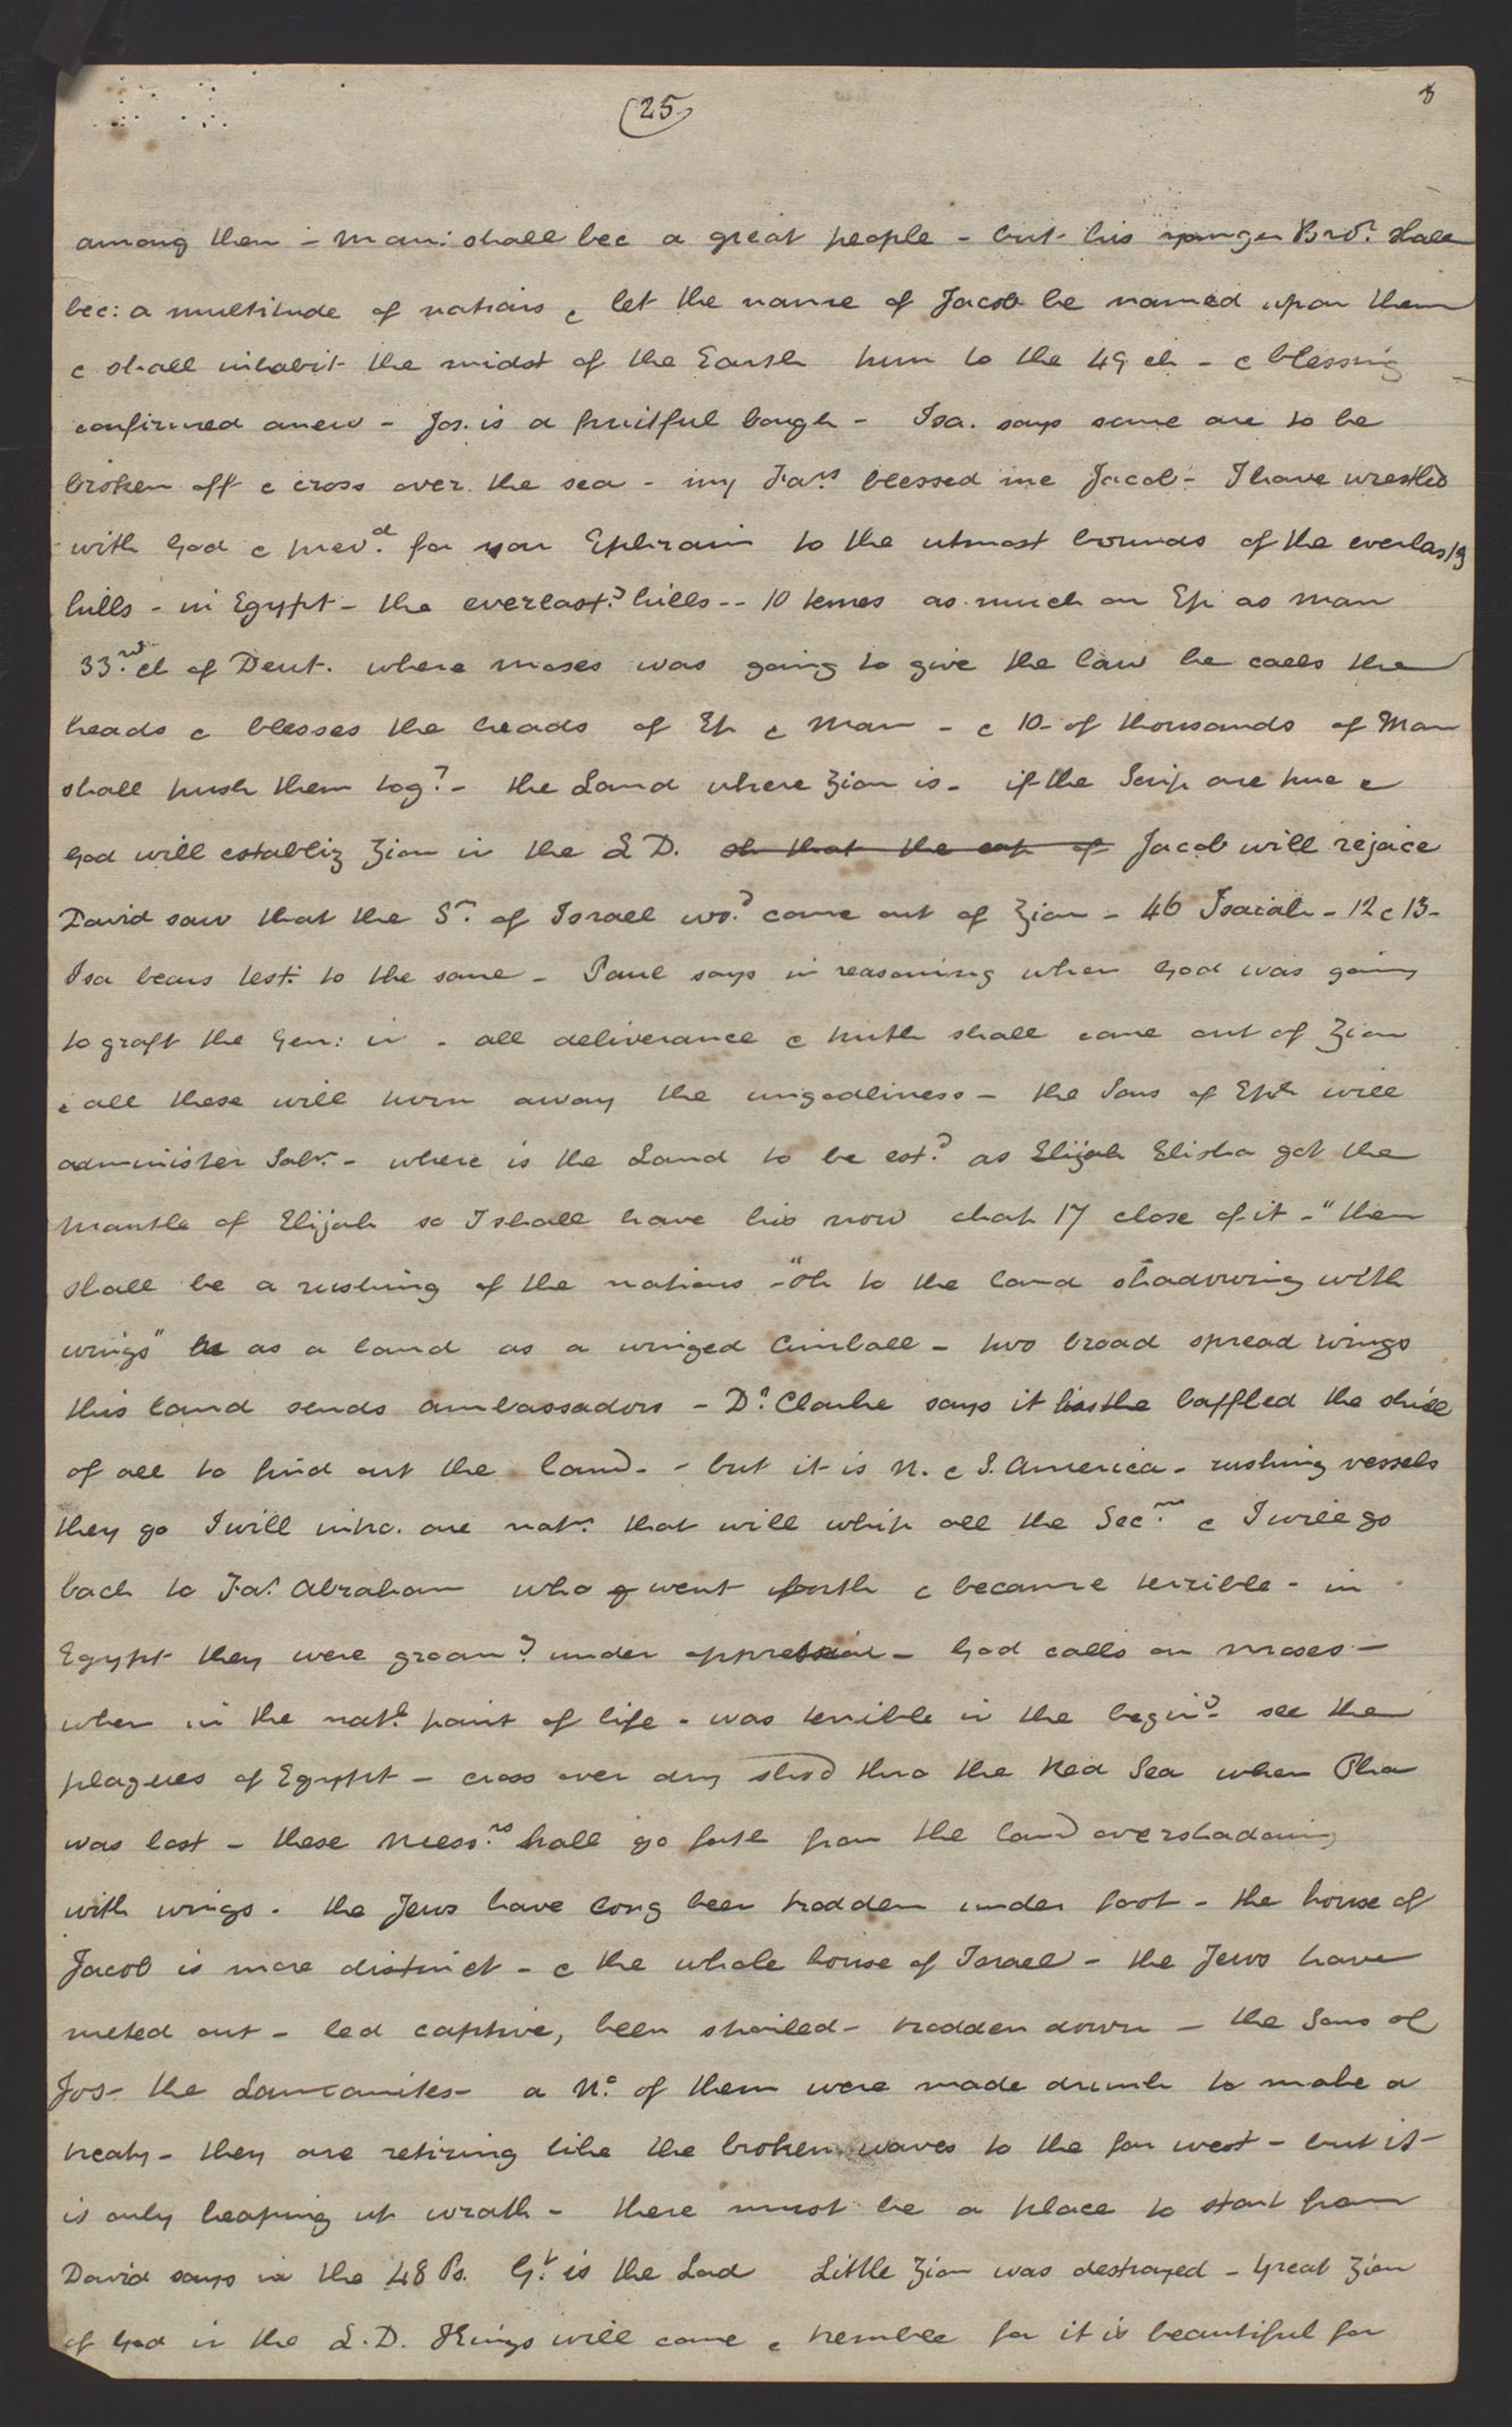 (25)
8
among them - Man: shall bec a great people - but his younger Bror. shall
bec: a multitude of nations & let the name of Jacob be named upon them
& shall inhabit the midst of the Earth turn to the 49 ch - & blessing
confirmed anew - Jos. is a fruitful bough - Isa. says some are to be
broken off & cross over the sea - my Fars blessed me Jacob - I have wrestled
with God & prevd. for you Ephraim to the utmost bounds of the everlastg
hills - in Egypt - the everlastg hills -- 10 times as much on Ep as Man
33rd. ch of Deut. where Moses was going to give the law he calls the
heads & blesses the heads of Ep & Man - & 10 of thousands of Man
shall push them togr. - the Land where Zion is - if the Scrip are true &
God will establiz Zion in the L D. Jacob will rejoice
David saw that the Sn. of Israel wod. come out of Zion - 46 Isaiah - 12 & 13 -
Isa bears testy to the same - Paul says in reasoning when God was going
to graft the Gen: in - all deliverance & truth shall come out of Zion
& all these will turn away the ungodliness - the Sons of Eph will
administer Saln. - where is the Land to be estd. as Elijah Elisha got the
mantle of Elijah so I shall have his now chap 17 close of it - "then
shall be a rushing of the nations - "oh to the land shadowing with
wings" as a land as a winged Cimball - two broad spread wings
this land sends ambassadors - Dr. Clarke says it has the baffled the skill
of all to find out the land - - but it is N. & S. America - rushing vessels
they go I will intro. one natn. that will whip all the Secns & I will go
back to Far. Abraham who went forth & became terrible - in
Egypt they were groang under oppression - God calls on Moses -
when in the natl. point of life - was terrible in the beging see the
plagues of Egypt - cross over dry shod thro the Red Sea when Pha
was lost - these Messrs hall go forth from the land overshadowing
with wings - the Jews have long been trodden under foot - the house of
Jacob is more distinct - & the whole house of Israel - the Jews have
meted out - led captive, been spoiled - trodden down - the Sons of
Jos - the Lamanites - a No. of them were made drunk to make a
treaty - they are retiring like the broken waves to the far west - but it
is only heaping up wrath - there must be a place to start from
David says in the 48 Ps. Gt. is the Lord Little Zion was destroyed - Great Zion
of God in the L.D. Kings will come & tremble for it is beautiful for